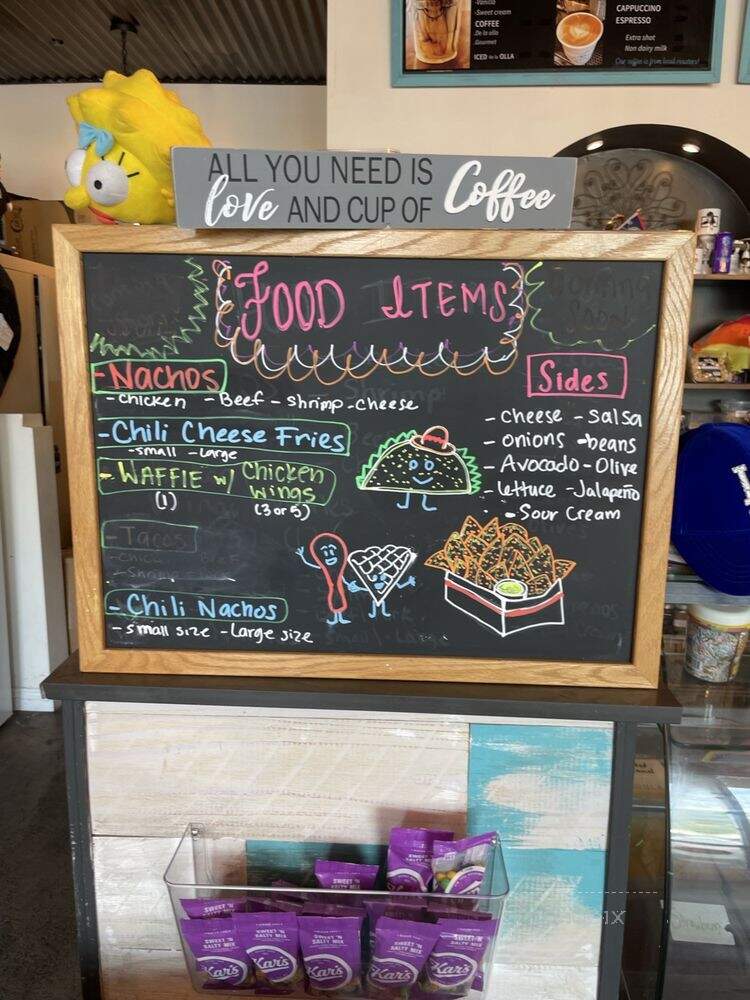 -Vanilla
-Sweet cream
COFFEE
-De la olla
-Gourmet
ICED de la OLLA
CAPPUCCINO
ESPRESSO
Extra shot
Non dairy milk
Our coffee is from local roasters!
ALL YOU NEED IS
love AND CUP OF Coffee
FOOD ITEMS
COMING
SOON
-NACHOS
-Chicken -Beef -Shrimp -cheese
-Chili Cheese Fries
-small -Large
-WAFFlE w/ Chicken
wings
(1) (3 or 5)
-Tacos
-Chili Nachos
-small size -Large size
Sides
-cheese -salsa
-onions -beans
-Avocado -Olive
-lettuce -Jalapeño
-Sour Cream
SWEET 'N
SALTY MIX
Kar's
SWEET 'N
SALTY MIX
Kar's
SWEET 'N
SALTY MIX
Kar's
SWEET 'N
SALTY MIX
Kar's
SWEET 'N
SALTY MIX
Kar's